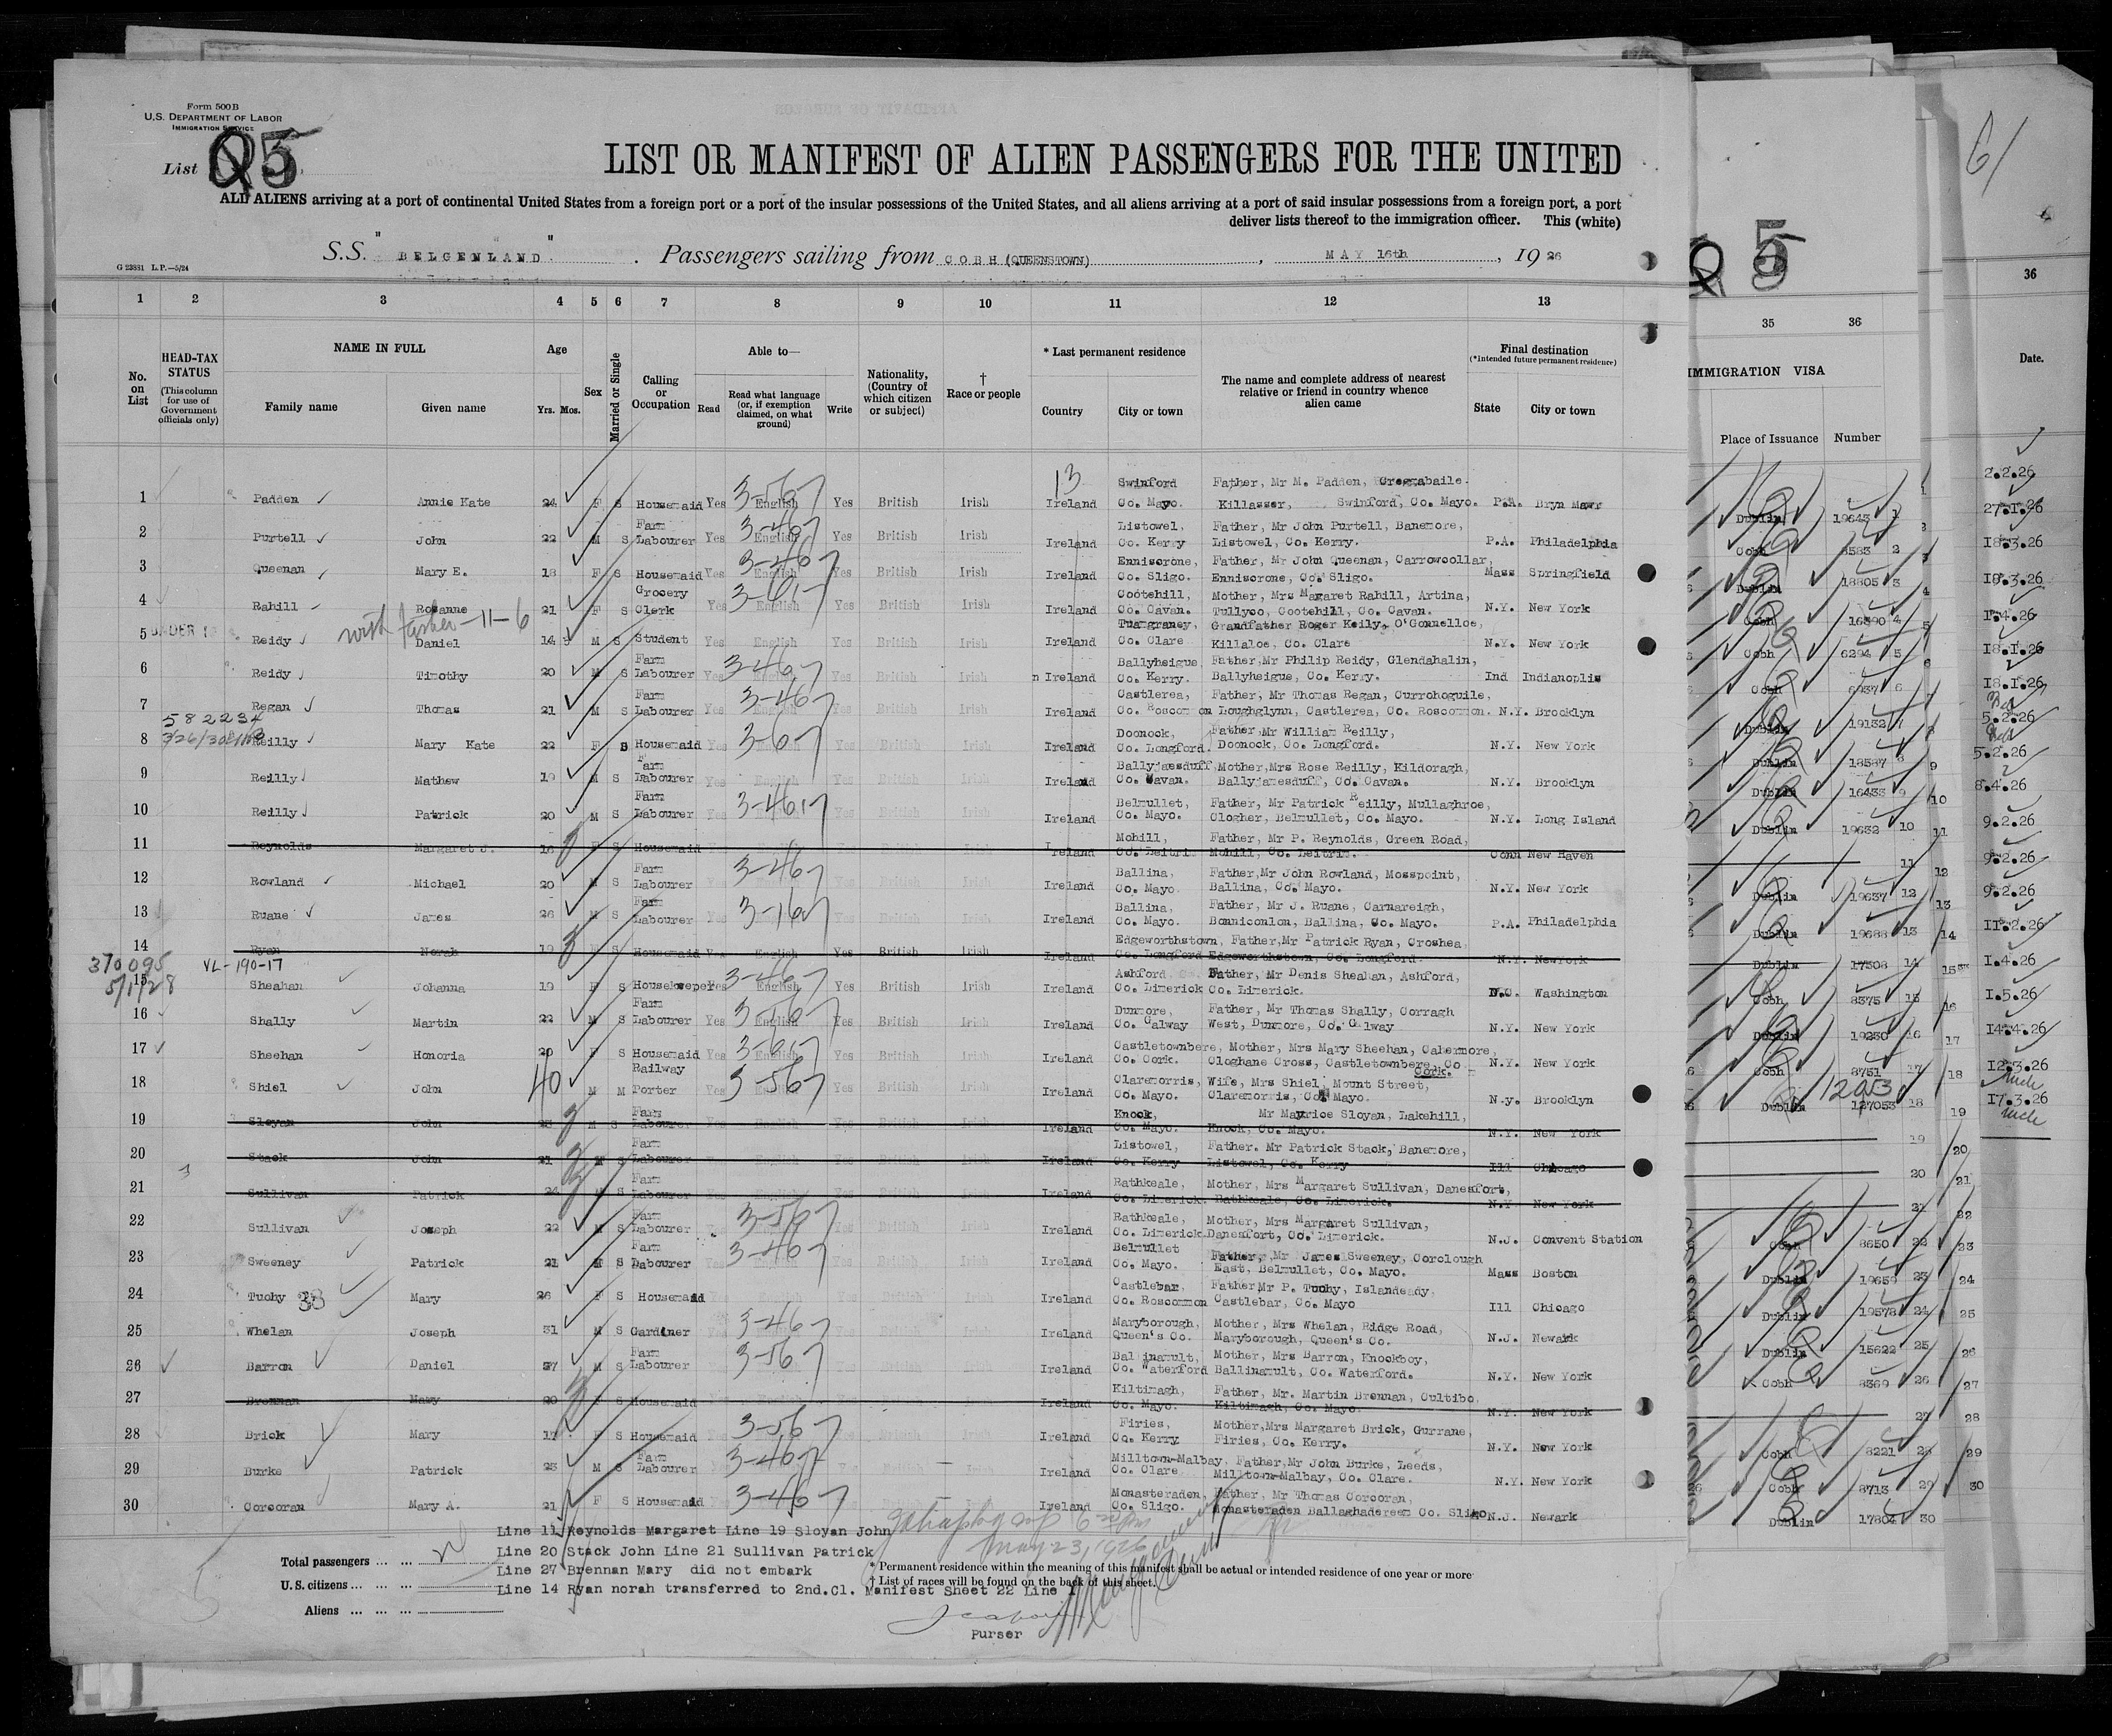 Form 500B
U.S. DEPARTMENT OF LABOR
IMMIGRATION SERVICE
List 5
LIST OR MANIFEST OF ALIEN PASSENGERS FOR THE UNITED
ALL ALIENS arriving at a port of continental United States from a foreign port or a port of the insular possessions of the United States, and all aliens arriving at a port of said insular possessions from a foreign port, a port
deliver lists thereof to the immigration officer. This (white)
S.S. "BELGENLAND". Passengers sailing from COBH (QUEENSTOWN), MAY 16th, 1926
G 23881 L.P.—5/24
1 2 3 4 5 6 7 8 9 10 11 12 13
No. on List
HEAD-TAX STATUS (This column for use of Government officials only)
NAME IN FULL Family name Given name
Age Yrs. Mos.
Sex
Married or Single
Calling or Occupation
Able to— Read Read what language (or, if exemption claimed, on what ground) Write
Nationality, (Country of which citizen or subject)
† Race or people
* Last permanent residence Country City or town
The name and complete address of nearest relative or friend in country whence alien came
Final destination (*Intended future permanent residence) State City or town
1 Padden Annie Kate 24 F S Housemaid Yes English Yes British Irish Ireland Swinford Co. Mayo. Father, Mr M. Padden, Creggabaile. Killasser, Swinford, Co. Mayo. P.A. Bryn Mawr
2 Purtell John 22 M S Farm Labourer Yes English Yes British Irish Ireland Listowel, Co. Kerry Father, Mr John Purtell, Banemore, Listowel, Co. Kerry. P.A. Philadelphia
3 Queenan Mary E. 18 F S Housemaid Yes English Yes British Irish Ireland Enniscrone, Co. Sligo. Father, Mr John Queenan, Carrowcollar, Enniscrone, Co. Sligo. Mass Springfield
4 Rahill Rosanne 21 F S Grocery Clerk Yes English Yes British Irish Ireland Cootehill, Co. Cavan. Mother, Mrs Margaret Rahill, Artina, Tullyco, Cootehill, Co. Cavan. N.Y. New York
with father-11-6
5 UNDER Reidy Daniel 14 M S Student Yes English Yes British Irish Ireland Tuamgraney, Co. Clare Grandfather Roger Keily, O'Gonnelloe, Killaloe, Co. Clare N.Y. New York
6 Reidy Timothy 20 M S Farm Labourer Yes English Yes British Irish Ireland Ballyheigue, Co. Kerry. Father, Mr Philip Reidy, Glendahalin, Ballyheigue, Co. Kerry. Ind Indianoplis
7 Regan Thomas 21 M S Farm Labourer Yes English Yes British Irish Ireland Castlerea, Co. Roscommon Father, Mr Thomas Regan, Currohoguile, Loughglynn, Castlerea, Co. Roscommon. N.Y. Brooklyn
582234
8 Reilly Mary Kate 22 F S Housemaid Yes English Yes British Irish Ireland Doonock, Co. Longford. Father Mr William Reilly, Doonock, Co. Longford. N.Y. New York
9 Reilly Mathew 19 M S Farm Labourer Yes English Yes British Irish Ireland Ballyjamesduff, Co. Cavan. Mother, Mrs Rose Reilly, Kildoragh, Ballyjamesduff, Co. Cavan. N.Y. Brooklyn
10 Reilly Patrick 20 M S Farm Labourer Yes English Yes British Irish Ireland Belmullet, Co. Mayo. Father, Mr Patrick Reilly, Mullaghroe, Clogher, Belmullet, Co. Mayo. N.Y. Long Island
11 Reynolds Margaret J. 18 F S Housemaid Ireland Mohill, Co. Leitrim Father, Mr P. Reynolds, Green Road, Mohill, Co. Leitrim. Conn New Haven
12 Rowland Michael 20 M S Farm Labourer Yes English Yes British Irish Ireland Ballina, Co. Mayo Father, Mr John Rowland, Mosspoint, Ballina, Co. Mayo. N.Y. New York
13 Ruane James 26 M S Farm Labourer Yes English Yes British Irish Ireland Ballina, Co. Mayo. Father, Mr J. Ruane, Carnareigh, Bonniconlon, Ballina, Co. Mayo. P.A. Philadelphia
14 Ryan Norah 19 F S Housemaid Yes English Yes British Irish Ireland Edgeworthstown, Co. Longford Father, Mr Patrick Ryan, Croshea, Edgeworthstown, Co. Longford. N.Y. NewYork
370095 VL-190-17
5/1/28
15 Sheahan Johanna 19 F S Housekeeper Yes English Yes British Irish Ireland Ashford Co. Limerick Father, Mr Denis Sheahan, Ashford, Co. Limerick. D.C. Washington
16 Shally Martin 22 M S Farm Labourer Yes English Yes British Irish Ireland Dunmore, Co. Galway Father, Mr Thomas Shally, Corragh West, Dunmore, Co. Galway N.Y. New York
17 Sheehan Honoria 20 F S Housemaid Yes English Yes British Irish Ireland Castletownbere, Co. Cork. Mother, Mrs Mary Sheehan, Cahermore, Cloghane Cross, Castletownbere, Co Cork. N.Y. New York
18 Shiel John 40 M M Railway Porter Yes English Yes British Irish Ireland Claremorris, Co. Mayo. Wife, Mrs Shiel, Mount Street, Claremorris, Co. Mayo. N.y. Brooklyn
19 Sloyan John 23 M S Farm Labourer Yes English Yes British Irish Ireland Knock, Co. Mayo. Mr Maurice Sloyan, Lakehill, Knock, Co. Mayo. N.Y. New York
20 Stack John 21 M S Farm Labourer Ireland Listowel, Co. Kerry Father. Mr Patrick Stack, Banemore, Listowel, Co. Kerry Ill Chicago
21 Sullivan Patrick 24 M S Farm Labourer Ireland Rathkeale, Co. Limerick. Mother, Mrs Margaret Sullivan, Danesfort, Rathkeale, Co. Limerick. N.Y New York
22 Sullivan Joseph 22 M S Farm Labourer Yes English Yes British Irish Ireland Rathkeale, Co. Limerick Mother, Mrs Margaret Sullivan, Danesfort, Co. Limerick. N.J. Convent Station
23 Sweeney Patrick 21 M S Farm Labourer Yes English Yes British Irish Ireland Belmullet Co. Mayo. Father, Mr James Sweeney, Corclough East, Belmullet, Co. Mayo. Mass Boston
24 Tuohy Mary 26 F S Housemaid Ireland Castlebar, Co. Roscommon Father, Mr P. Tuohy, Islandeady, Castlebar, Co. Mayo Ill Chicago
25 Whelan Joseph 31 M S Gardiner Ireland Maryborough, Queen's Co. Mother, Mrs Whelan, Ridge Road, Maryborough, Queen's Co. N.J. Newark
26 Barron Daniel 27 M S Farm Labourer Ireland Ballinamult, Co. Waterford Mother, Mrs Barron, Knockboy, Ballinamult, Co. Waterford. N.Y. New York
27 Brennan Mary 20 F S Housemaid Ireland Kiltimagh, Co. Mayo. Father, Mr. Martin Brennan, Cultibo, Kiltimagh, Co. Mayo. N.Y. New York
28 Brick Mary 17 F S Housemaid Ireland Firies, Co. Kerry Mother, Mrs Margaret Brick, Gurrane, Firies, Co. Kerry. N.Y. New York
29 Burke Patrick 23 M S Farm Labourer Ireland Milltown-Malbay, Co. Clare Father, Mr John Burke, Leeds, Milltown-Malbay, Co. Clare. N.Y. New York
30 Corcoran Mary A. 21 F S Housemaid Ireland Monasteraden, Co. Sligo. Father, Mr Thomas Corcoran, Monasteraden Ballaghadereen Co. Sligo N.J. Newark
Line 11 Reynolds Margaret Line 19 Sloyan John
Line 20 Stack John Line 21 Sullivan Patrick
Line 27 Brennan Mary did not embark
Line 14 Ryan norah transferred to 2nd.Cl. Manifest Sheet 22 Line 1
May 23, 1926
Total passengers
U.S. citizens
Aliens
* Permanent residence within the meaning of this manifest shall be actual or intended residence of one year or more
† List of races will be found on the back of this sheet.
Purser
5
35 36
IMMIGRATION VISA
Place of Issuance Number
Dublin 19643 1
Cobh 8583 2
Dublin 18805 3
Cobh 16390 4
Cobh 6294 5
Cobh 6937 6
Dublin 19132 7
Dublin 18587 8
Dublin 16433 9
Dublin 19632 10
11
Dublin 19637 12
Dublin 19688 13
Dublin 17308 14
Cobh 8375 15
Dublin 19230 16
Cobh 8751 17
Dublin 127053 18
19
20
21
Cobh 8650 22
Dublin 19659 23
Dublin 19578 24
Dublin 15622 25
Cobh 8369 26
27
Cobh 8221 28
Cobh 8713 29
Dublin 17804 30
61
36
Date.
2.2.26
27.1.26
18.3.26
18.3.26
1.4.26
18.1.26
18.1.26
5.2.26
5.2.26
8.4.26
9.2.26
9.2.26
9.2.26
11.2.26
1.4.26
1.5.26
14.4.26
12.3.26
17.3.26